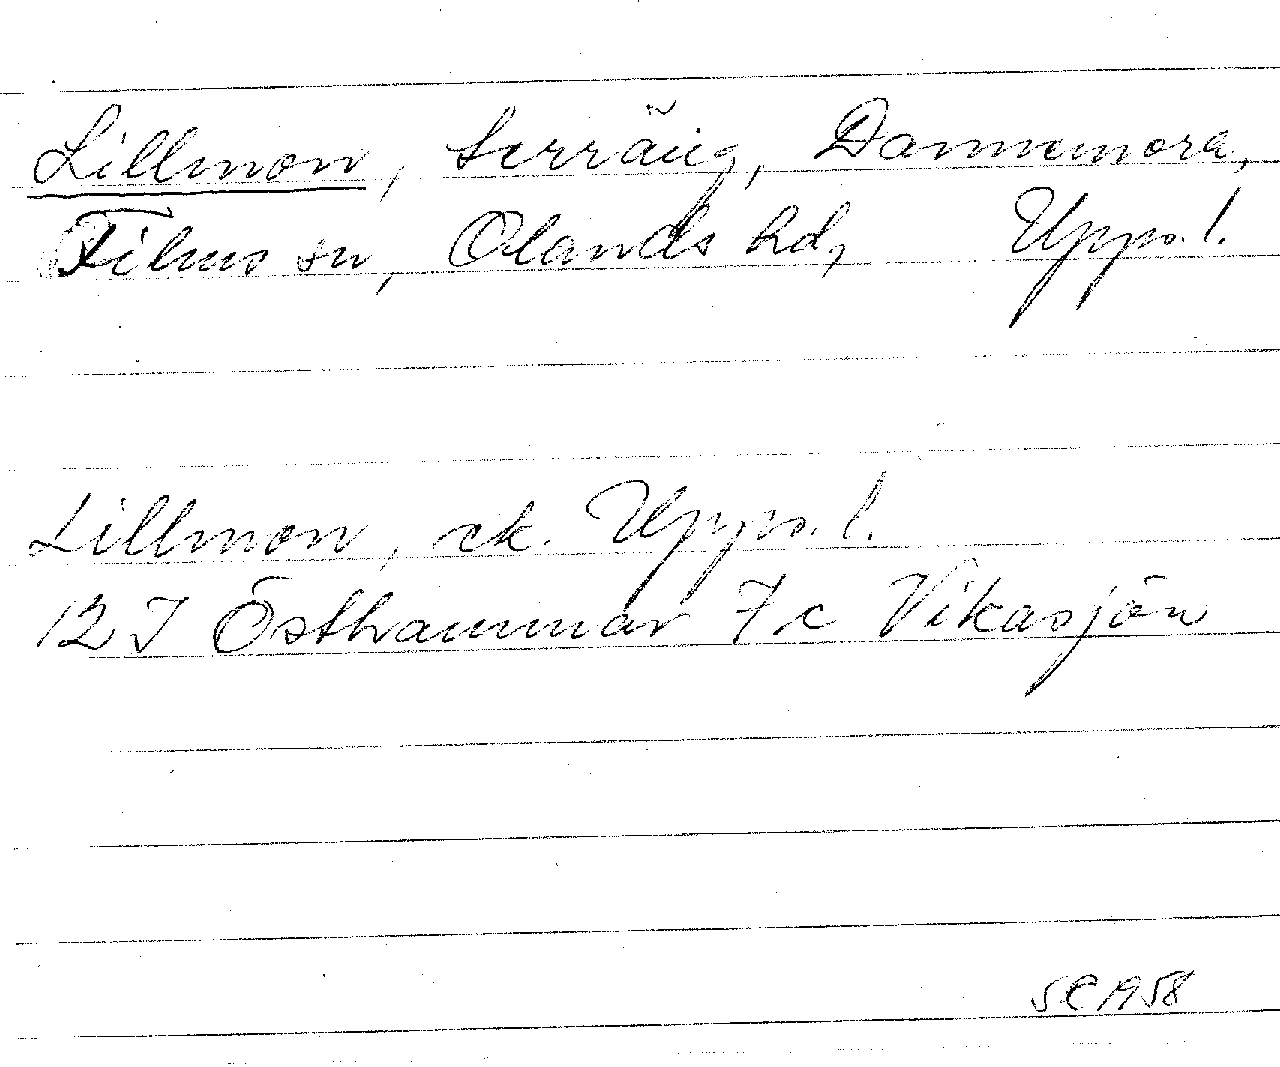 Lillmon, terräng, Dannemora,
Films sn, Olands hd, Upps. l.
Lillmon, ek. Upps. l.
12 I Östhammar 7c Vikasjön
SE 1958